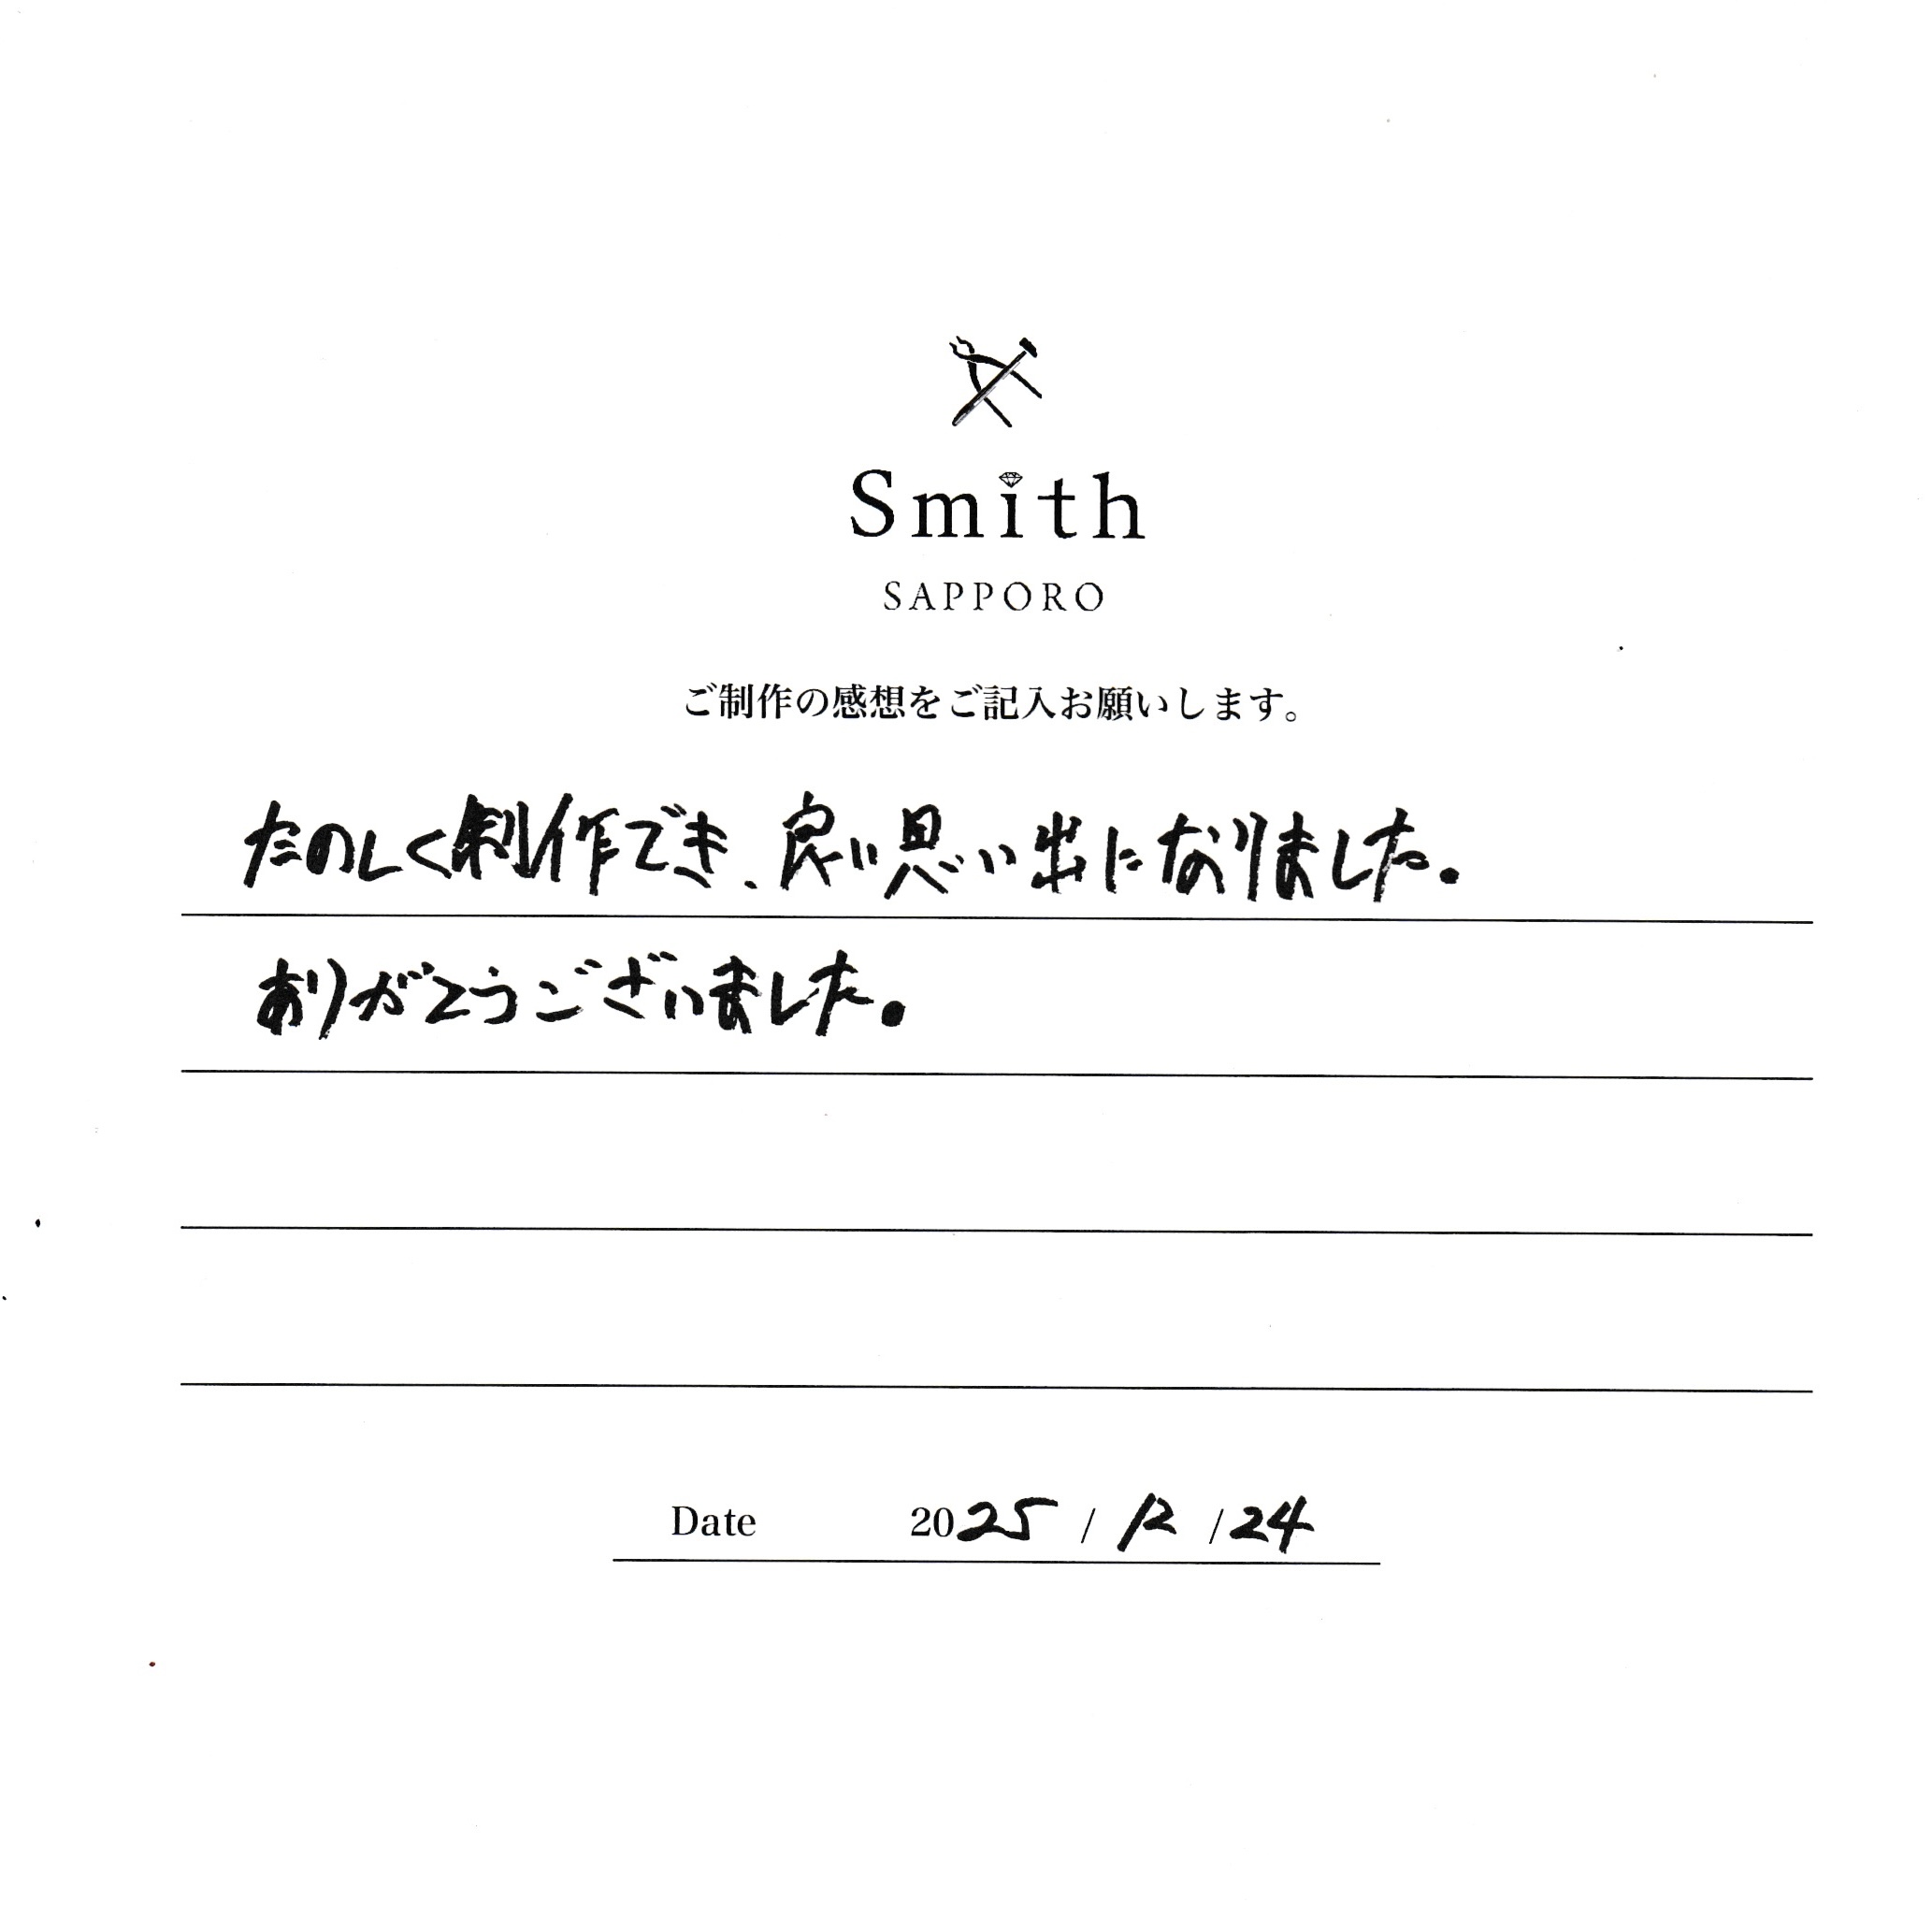 Smith
SAPPORO
ご制作の感想をご記入お願いします。
たのしく制作でき、良い思い出になりました。
ありがとうございました。
Date 2025 / 12 / 24